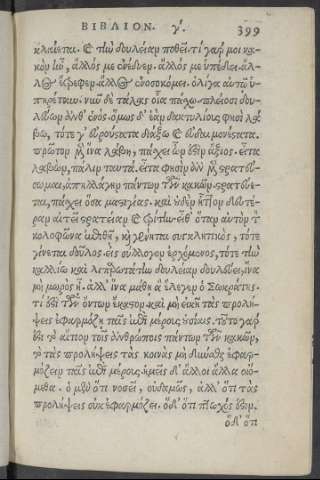 ΒΙΒΛΙΟΝ. γ´. 399
κλαίεται. καὶ τὴν δουλείαν ποθεῖ. τί γάρ μοι κα-
κὸν ἦν, ἄλλός με ἐνέδυεν. ἄλλός με ὑπέδει. ἄλ-
λος ἔτρεφεν. ἄλλος ἐνοσοκόμει. ὀλίγα αὐτῷ ὑ-
πηρέτουν. νῦν δὲ τάλας οἷα πάχω. πλείοσι δου-
λεύων ἀνθ' ἑνός. ὅμως δ' ἐὰν δακτυλίους φησὶ λά-
βω, τότε γ' εὐρούστατα διάξω καὶ εὐδαιμονέστατα.
πρῶτον μὲν ἵνα λάβῃ, πάχει ὧν ἐστὶν ἄξιος. εἶτα
λαβὼν, πάλιν ταυτά. εἶτα φησὶν ἂν μὲν στρατεύ-
σωμαι, ἀπηλλάγην πάντων τῶν κακῶν. στρατεύε-
ται, πάχει ὅσα μαστιγίας. καὶ οὐδὲν ἧττον δευτέ-
ραν αἰτεῖ στρατείαν καὶ τρίτην. εἶθ' ὅταν αὐτὸν τὸν
κολοφῶνα ἐπιθῇ, καὶ γένηται συγκλητικὸς, τότε
γίνεται δοῦλος. εἰς σύλλογον ἐρχόμενος, τότε τὴν
καλλίστην καὶ λιπαρωτάτην δουλείαν δουλεύει, ἵνα
μὴ μωρὸς ᾖ. ἀλλ' ἵνα μάθῃ ἃ ἔλεγεν ὁ Σωκράτης.
τί ἐστὶ τῶν ὄντων ἕκαστον. καὶ μὴ εἰκῆ τὰς προλή-
ψεις ἐφαρμόζῃ ταῖς ἐπὶ μέρους οὐσίαις. τοῦτο γάρ
ἐστι τὸ αἴτιον τοῖς ἀνθρώποις πάντων τῶν κακῶν,
τὸ τὰς προλήψεις τὰς κοινὰς μὴ δύναθς ἐφαρ-
μόζειν ταῖς ἐπὶ μέρους. ἡμεῖς δ' ἄλλοι ἄλλα οἰό-
μεθα. ὁ μὲν ὅτι νοσεῖ, οὐδαμῶς, ἀλλ' ὅτι τὰς
προλήψεις οὐκ ἐφαρμόζει. ὁ δ' ὅτι πτωχός ἐστιν.
ὁ δ' ὅτι